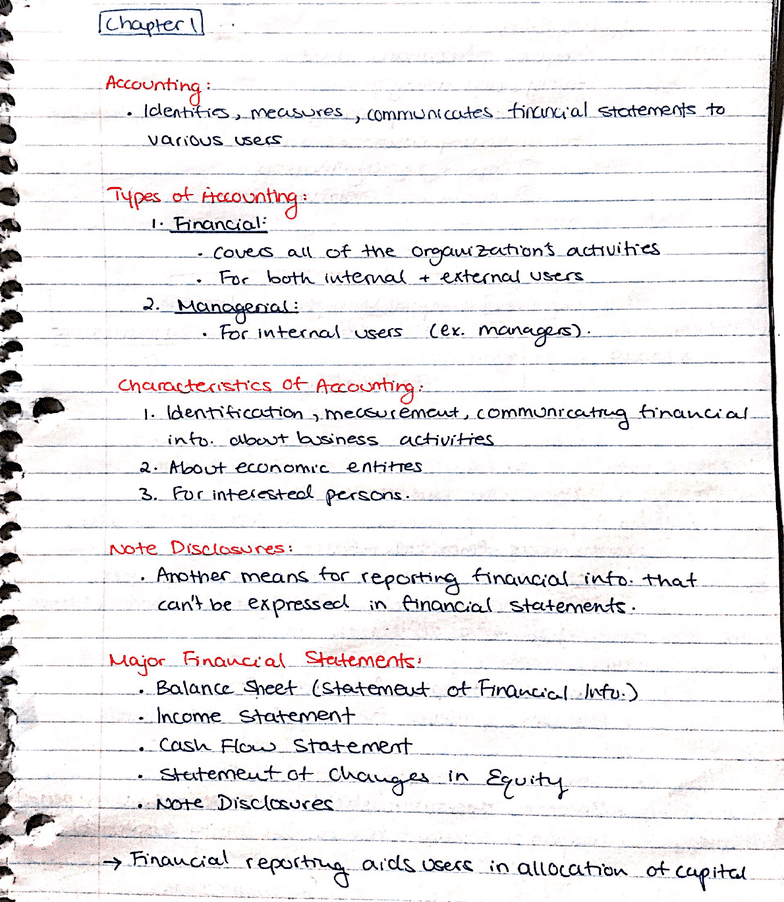 Chapter 1
Accounting:
• Identifies, measures, communicates financial statements to
various users
Types of Accounting:
1. Financial:
• covers all of the organization's activities
• For both internal + external users
2. Managerial:
• For internal users (ex. managers).
Characteristics of Accounting:
1. Identification, measurement, communicating financial
info. about business activities
2. About economic entities
3. For interested persons.
Note Disclosures:
• Another means for reporting financial info. that
can't be expressed in financial statements.
Major Financial Statements:
• Balance Sheet (Statement of Financial Info.)
• Income Statement
• Cash Flow Statement
• Statement of Changes in Equity
• Note Disclosures
→ Financial reporting aids users in allocation of capital